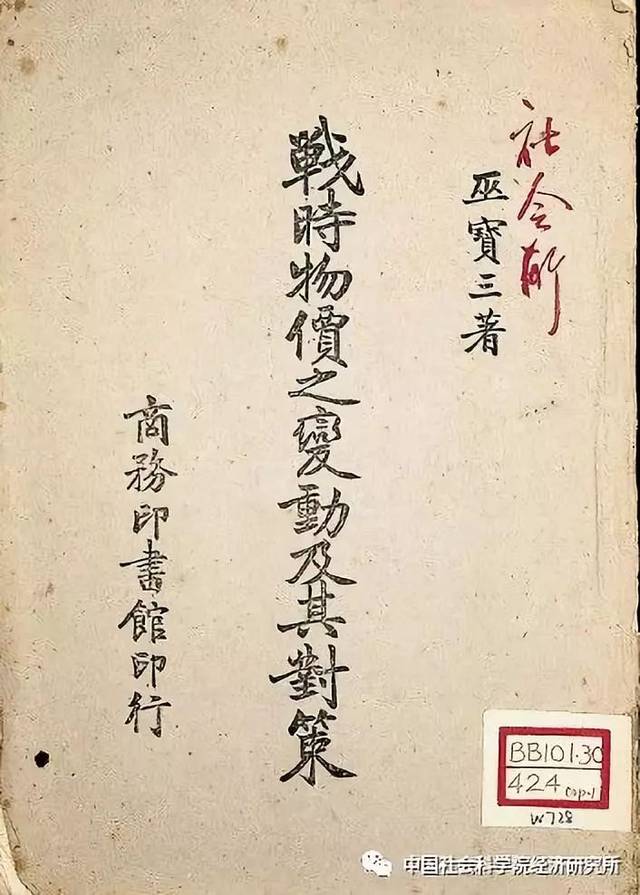 社会所
巫寶三著
戰時物價之變動及其對策
商務印書館印行
BB101·30
424 cop.1
W728
中国社会科学院经济研究所